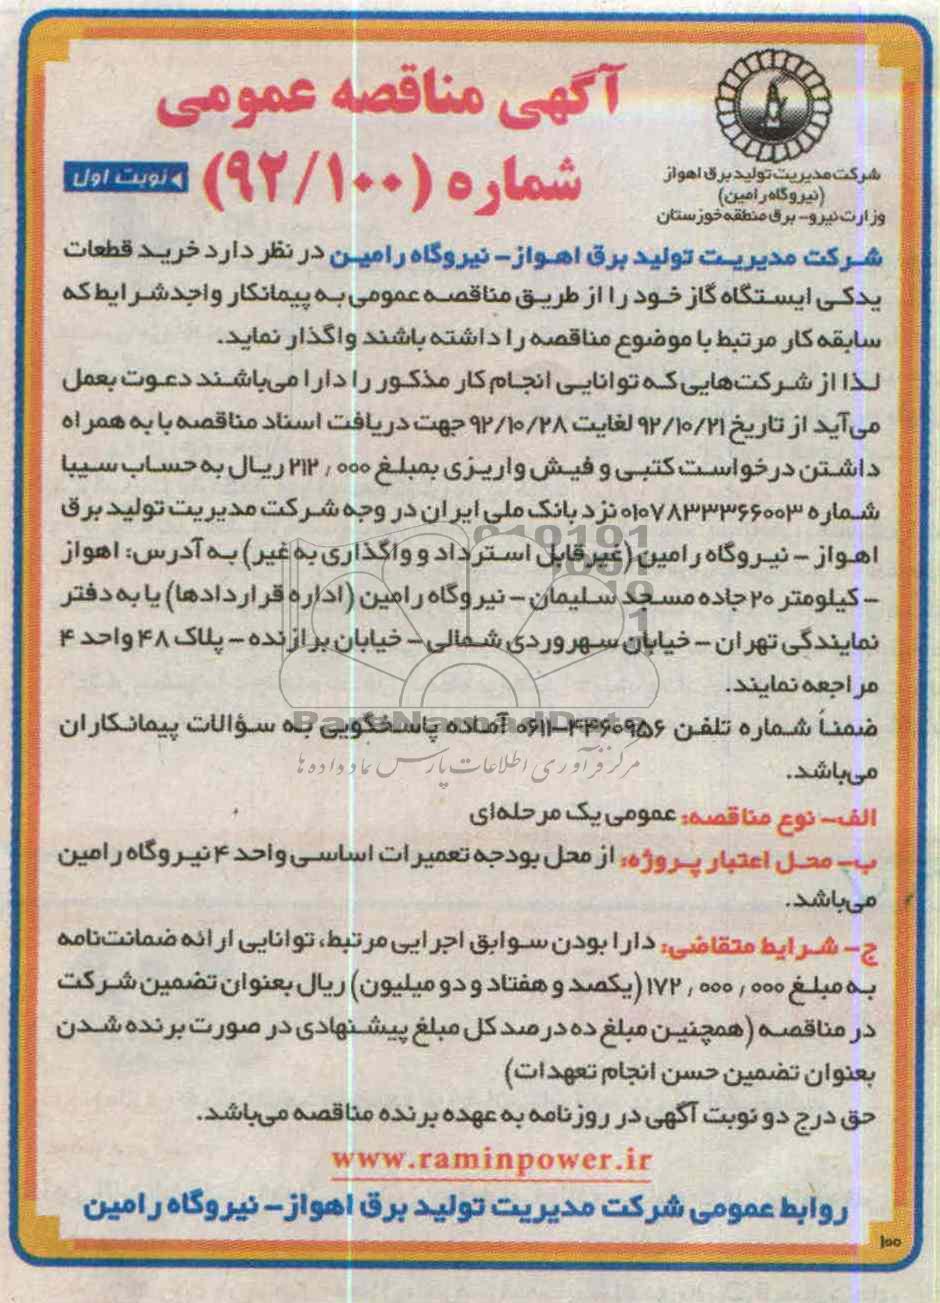 آگهی مناقصه عمومی
شماره (۹۲/۱۰۰)
نوبت اول
شرکت مدیریت تولید برق اهواز
(نیروگاه رامین)
وزارت نیرو- برق منطقه خوزستان
شرکت مدیریت تولید برق اهواز- نیروگاه رامین در نظر دارد خرید قطعات
یدکی ایستگاه گاز خود را از طریق مناقصه عمومی به پیمانکار واجدشرایط که
سابقه کار مرتبط با موضوع مناقصه را داشته باشند واگذار نماید.
لذا از شرکت‌هایی که توانایی انجام کار مذکور را دارا می‌باشند دعوت بعمل
می‌آید از تاریخ ۹۲/۱۰/۲۱ لغایت ۹۲/۱۰/۲۸ جهت دریافت اسناد مناقصه با به همراه
داشتن درخواست کتبی و فیش واریزی بمبلغ ۲۱۲,۰۰۰ ریال به حساب سیبا
شماره ۰۱۰۷۸۳۳۳۶۶۰۰۳ نزد بانک ملی ایران در وجه شرکت مدیریت تولید برق
اهواز - نیروگاه رامین (غیرقابل استرداد و واگذاری به غیر) به آدرس: اهواز
- کیلومتر ۲۰ جاده مسجد سلیمان - نیروگاه رامین (اداره قراردادها) یا به دفتر
نمایندگی تهران - خیابان سهروردی شمالی - خیابان برازنده - پلاک ۴۸ واحد ۴
مراجعه نمایند.
ضمناً شماره تلفن ۴۴۶۰۹۵۶-۰۶۱۱ آماده پاسخگویی به سؤالات پیمانکاران
می‌باشد.
الف- نوع مناقصه: عمومی یک مرحله‌ای
ب- محل اعتبار پروژه: از محل بودجه تعمیرات اساسی واحد ۴ نیروگاه رامین
می‌باشد.
ج- شرایط متقاضی: دارا بودن سوابق اجرایی مرتبط، توانایی ارائه ضمانت‌نامه
به مبلغ ۱۷۲,۰۰۰,۰۰۰ (یکصد و هفتاد و دو میلیون) ریال بعنوان تضمین شرکت
در مناقصه (همچنین مبلغ ده درصد کل مبلغ پیشنهادی در صورت برنده شدن
بعنوان تضمین حسن انجام تعهدات)
حق درج دو نوبت آگهی در روزنامه به عهده برنده مناقصه می‌باشد.
www.raminpower.ir
روابط عمومی شرکت مدیریت تولید برق اهواز- نیروگاه رامین
۱۰۰
ParsNamadData
مرکز فرآوری اطلاعات پارس نماد داده ها